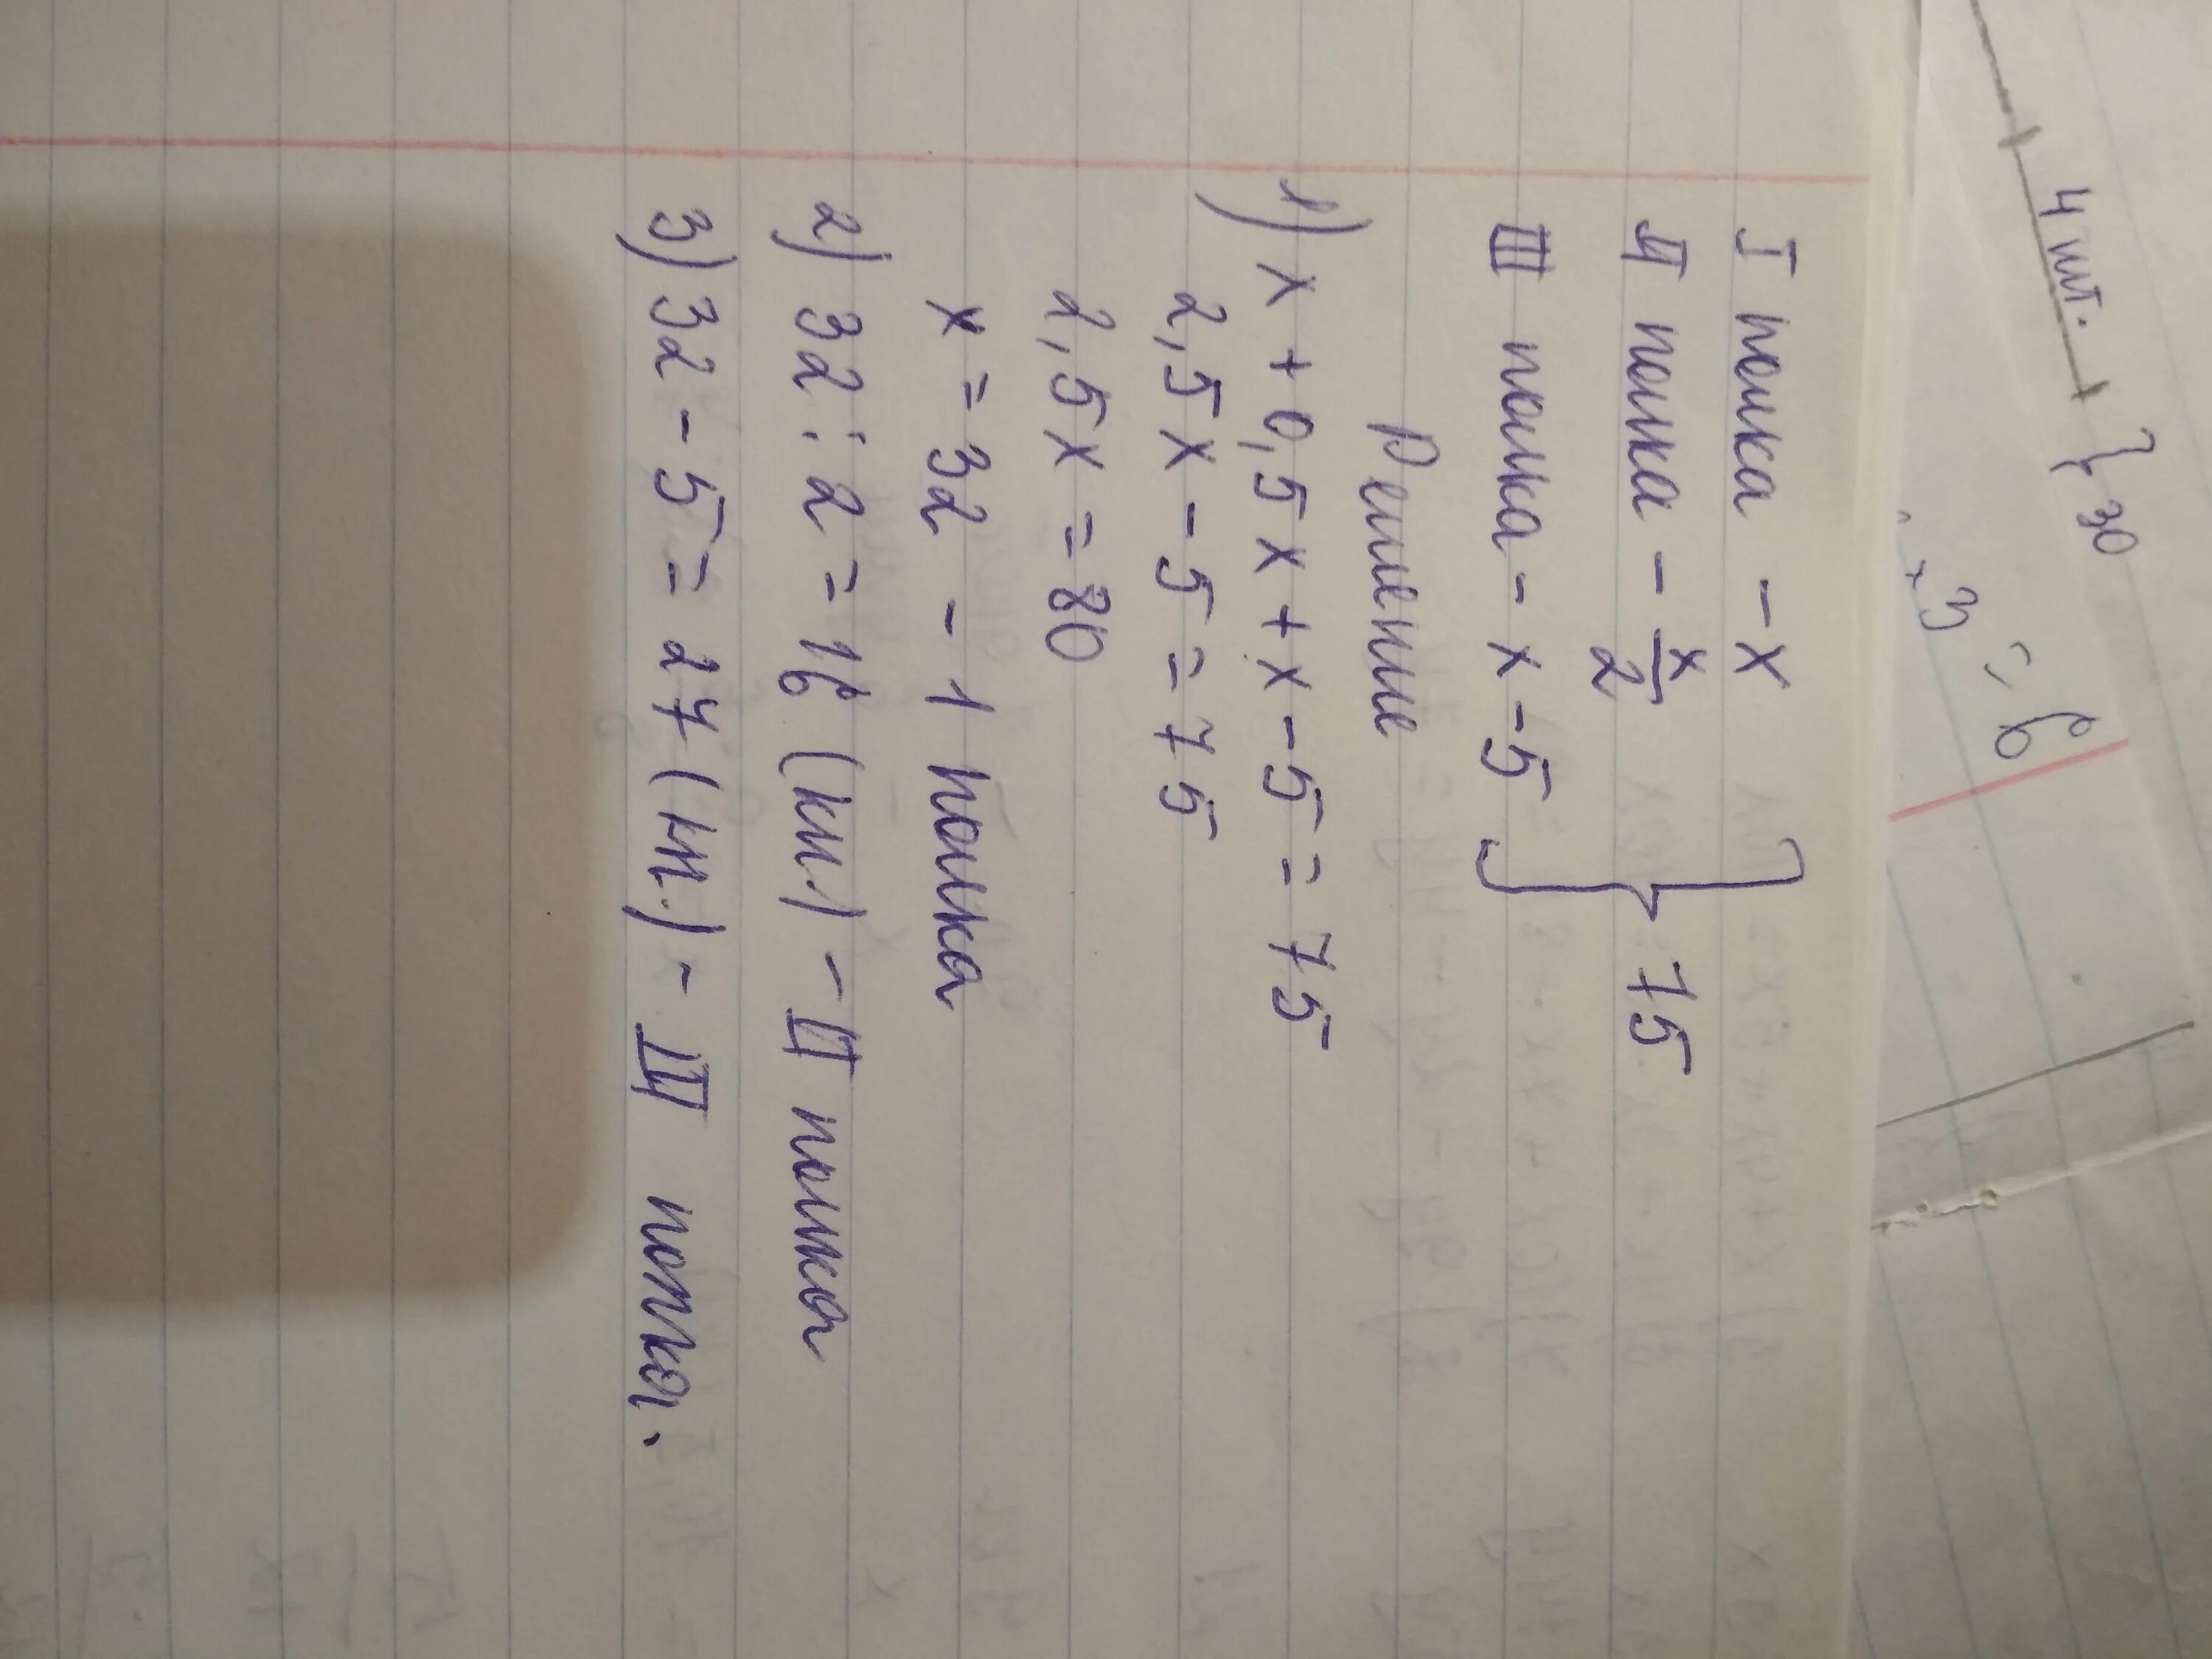 4 шт. } 30
I полка - x
II полка - x/2
III полка - x - 5 } 75
Решение
1) x + 0,5x + x - 5 = 75
2,5x - 5 = 75
2,5x = 80
x = 32 - 1 полка
2) 32 : 2 = 16 (кн.) - II полка
3) 32 - 5 = 27 (кн.) - III полка.